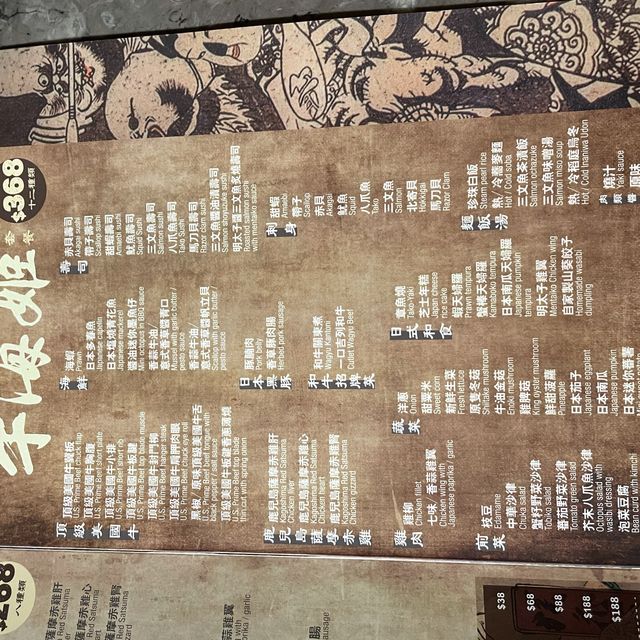 牛海姬
套餐
$368
十二種類
頂級美國牛
頂級美國牛封板
U.S. Prime Beef chuck flap
頂級美國牛胸腹
U.S. Prime Beef short plate
頂級美國牛小排
U.S. Prime Beef short rib
頂級美國牛板腱
U.S. Prime Beef top blade muscle
頂級美國牛封門柳
U.S. Prime Beef hanger steak
頂級美國牛肩胛肉眼
U.S. Prime Beef chuck eye roll
黑椒 / 原味頂級美國牛舌
U.S. Prime Beef tongue with
black pepper / salt sauce
頂級美國牛板腱香蔥薄燒
U.S. Prime Beef top blade
thin cut with spring onion
鹿兒島薩摩赤雞
鹿兒島薩摩赤雞肝
Kagoshima Red Satsuma
Chicken liver
鹿兒島薩摩赤雞心
Kagoshima Red Satsuma
Chicken heart
鹿兒島薩摩赤雞腎
Kagoshima Red Satsuma
Chicken gizzard
雞肉
雞柳
Chicken fillet
七味 / 香蒜雞翼
Chicken wing with
Japanese paprika / garlic
前菜
枝豆
Edamame
中華沙律
Chuka Salad
蟹籽青菜沙律
Tobiko salad
蕃茄青菜沙律
Tomato green salad
芥末八爪魚沙律
Octopus salad with
wasabi dressing
泡菜豆腐
Bean curd with kimchi
海鮮
海蝦
Prawn
日本多春魚
Japanese capelin
鹽燒鯖花魚
Japanese mackerel
醬油迷你墨魚仔
Mini octopus in BBQ sauce
香草牛油 /
意式香草醬青口
Mussel with garlic butter /
pesto sauce
香蒜牛油 /
意式香草醬帆立貝
Scallop with garlic butter /
pesto sauce
日本黑豚
豚腩肉
Pork belly
香草豚肉腸
Herbed pork sausage
和牛招牌菜
和牛關東煮
Wagyu Kantoni
一口吉列和牛
Cutlet Wagyu Beef
蔬菜
洋蔥
Onion
甜粟米
Sweet corn
新鮮生菜
Fresh lettuce
原隻冬菇
Shiitake mushroom
牛油金菇
Enoki mushroom
雞脾菇
King oyster mushroom
鮮甜菠蘿
Pineapple
日本茄子
Japanese eggplant
日本南瓜
Japanese pumpkin
日本迷你番薯
壽司
赤貝壽司
Akagai sushi
帶子壽司
Scallop sushi
甜蝦壽司
Amaebi sushi
魷魚壽司
Squid sushi
三文魚壽司
Salmon sushi
八爪魚壽司
Tako Sushi
馬刀貝壽司
Razor clam sushi
三文魚醬油漬壽司
Salmon shoyuzuke sushi
明太子三文魚炙燒壽司
Roasted salmon sushi
with mentaiko sauce
刺身
甜蝦
Amaebi
帶子
Scallop
赤貝
Akagai
魷魚
Squid
八爪魚
Tako
三文魚
Salmon
北寄貝
Hokkigai
馬刀貝
Razor Clam
日式和食
章魚燒
Tako-Yaki
芝士年糕
Japanese cheese
rice cake
蝦天婦羅
Prawn tempura
蟹棒天婦羅
Kamaboko tempura
日本南瓜天婦羅
Japanese pumpkin
tempura
明太子雞翼
Mentaiko Chicken wing
自家製山葵餃子
Homemade wasabi
dumpling
麵飯湯
珍珠白飯
Steam pearl rice
熱 / 冷蕎麥麵
Hot / Cold soba
三文魚茶漬飯
Salmon ochazuke
三文魚味噌湯
Salmon miso soup
熱 / 冷稻庭烏冬
Hot / Cold Inaniwa Udon
燒汁
Yaki sauce
$288
八種類
薩摩赤雞肝
Red Satsuma
薩摩赤雞心
Red Satsuma
薩摩赤雞腎
Red Satsuma
gizzard
蒜雞翼
garlic
腸
sausage
$38
$68
$88
$188
$188